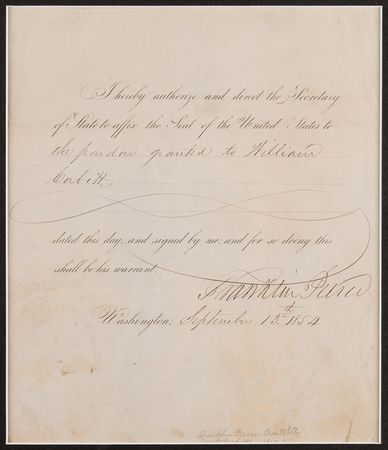 I hereby authorize and direct the Secretary
of State to affix the Seal of the United States to
the pardon granted to William
Corbitt
dated this day, and signed by me: and for so doing this
shall be his warrant.
Franklin Pierce
Washington, September 15th 1854
Franklin Pierce